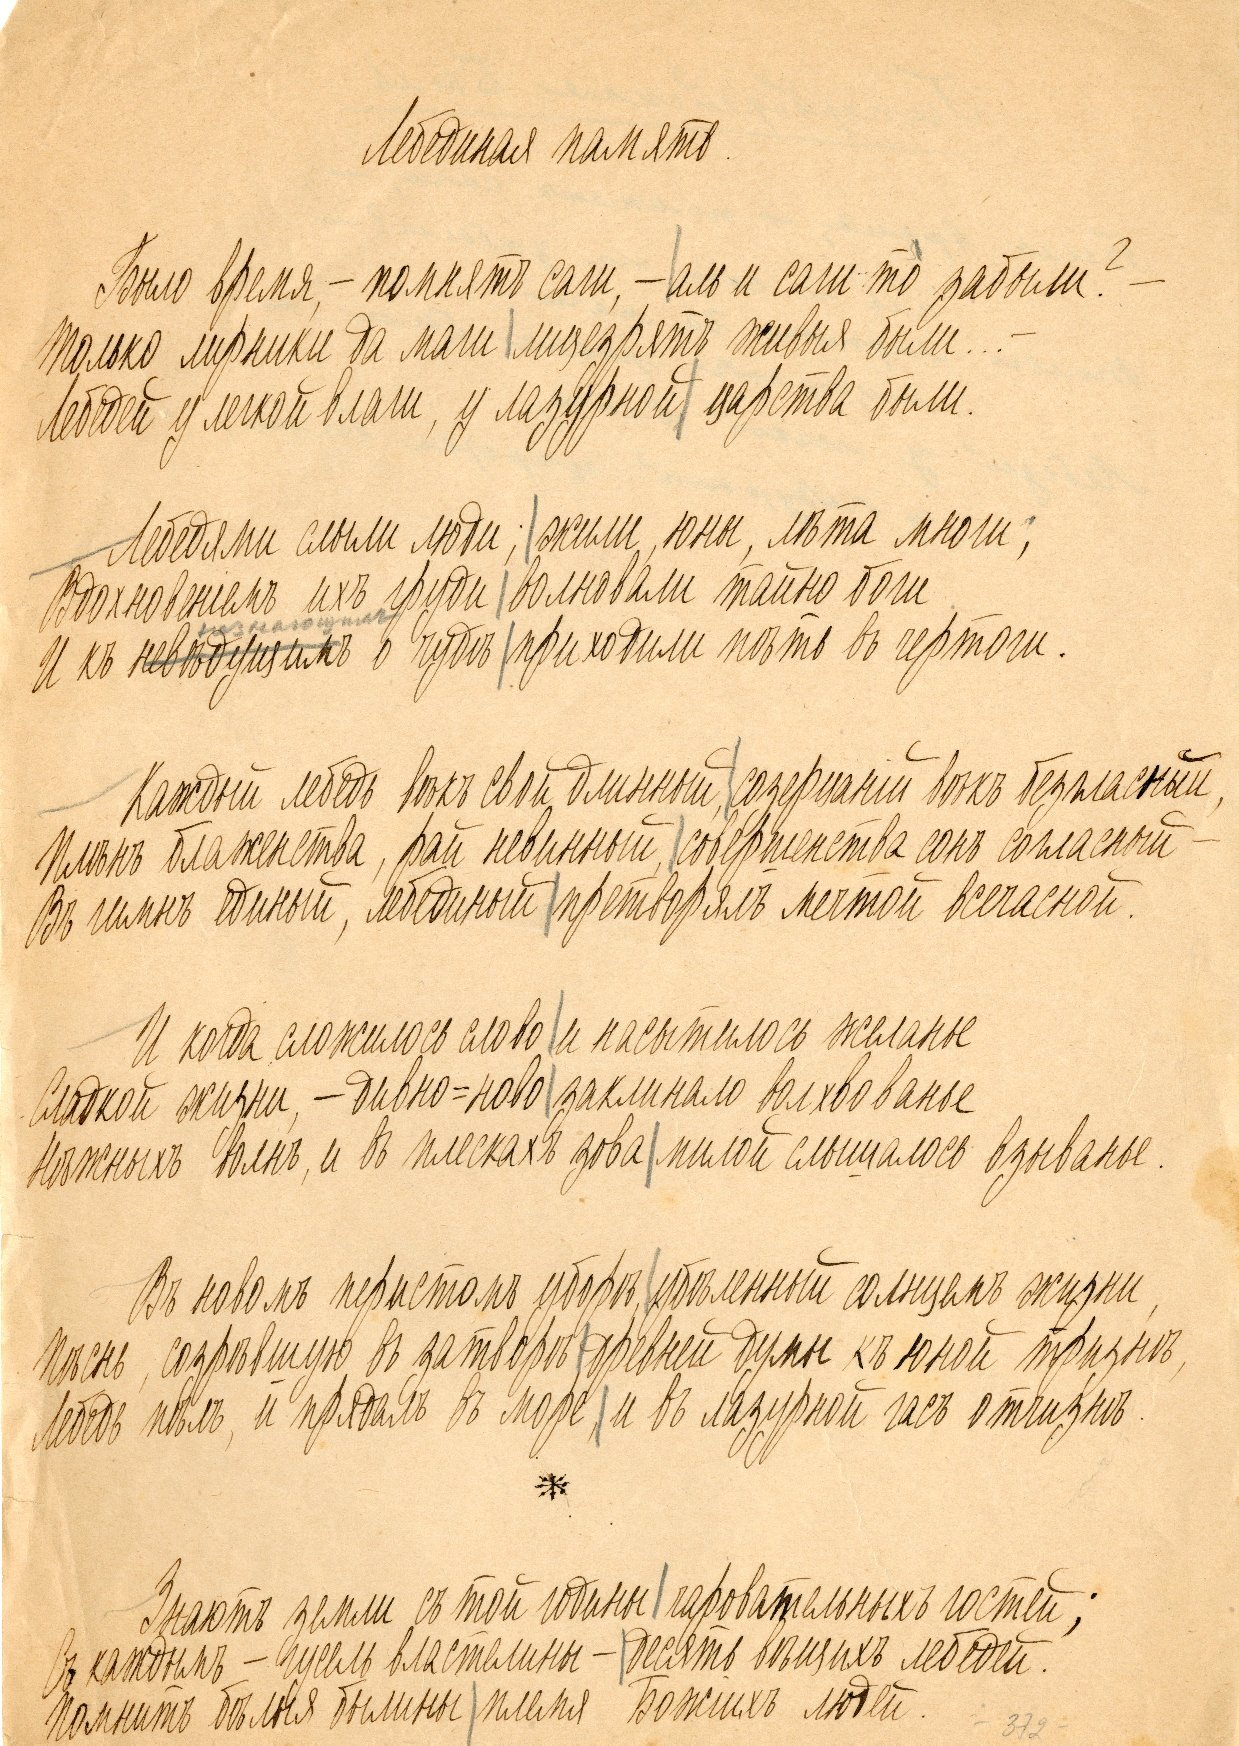 Лебединая память.
Было время, – помнятъ саги, – / аль и саги-то забыли? –
Только лирники да маги / лицезрятъ живыя были... –
Лебедей у легкой влаги, у лазурной / царства были.
Лебедями слыли люди; / жили, юны, лѣта многи;
Вдохновеніемъ ихъ груди / волновали тайно боги
незнающимъ
И къ невѣдущимъ о чудѣ / приходили пѣть въ чертоги.
Каждый лебедь вѣкъ свой длинный, / созерцаній вѣкъ безгласный,
Плѣнъ блаженства, рай невинный, / совершенства сонъ согласный –
Въ гимнъ единый, лебединый / претворялъ мечтой всечасной.
И когда сложилось слово / и насытилось желанье
Сладкой жизни, – дивно=ново / заклинало волхвованье
Нѣжныхъ волнъ, и въ плескахъ зова / милой слышалось взыванье.
Въ новомъ перистомъ уборѣ, / убѣленный солнцемъ жизни,
Пѣснь, созрѣвшую въ затворѣ / древней думы къ юной тризнѣ,
Лебедь пѣлъ, и прядалъ въ море, / и въ лазурной гасъ отчизнѣ.
*
Знаютъ земли съ той годины / чаровательныхъ гостей;
Въ каждымъ – гусель властелины – / десять вѣщихъ лебедей.
Помнитъ бѣлыя былины / племя Божіихъ людей.
– 372 –